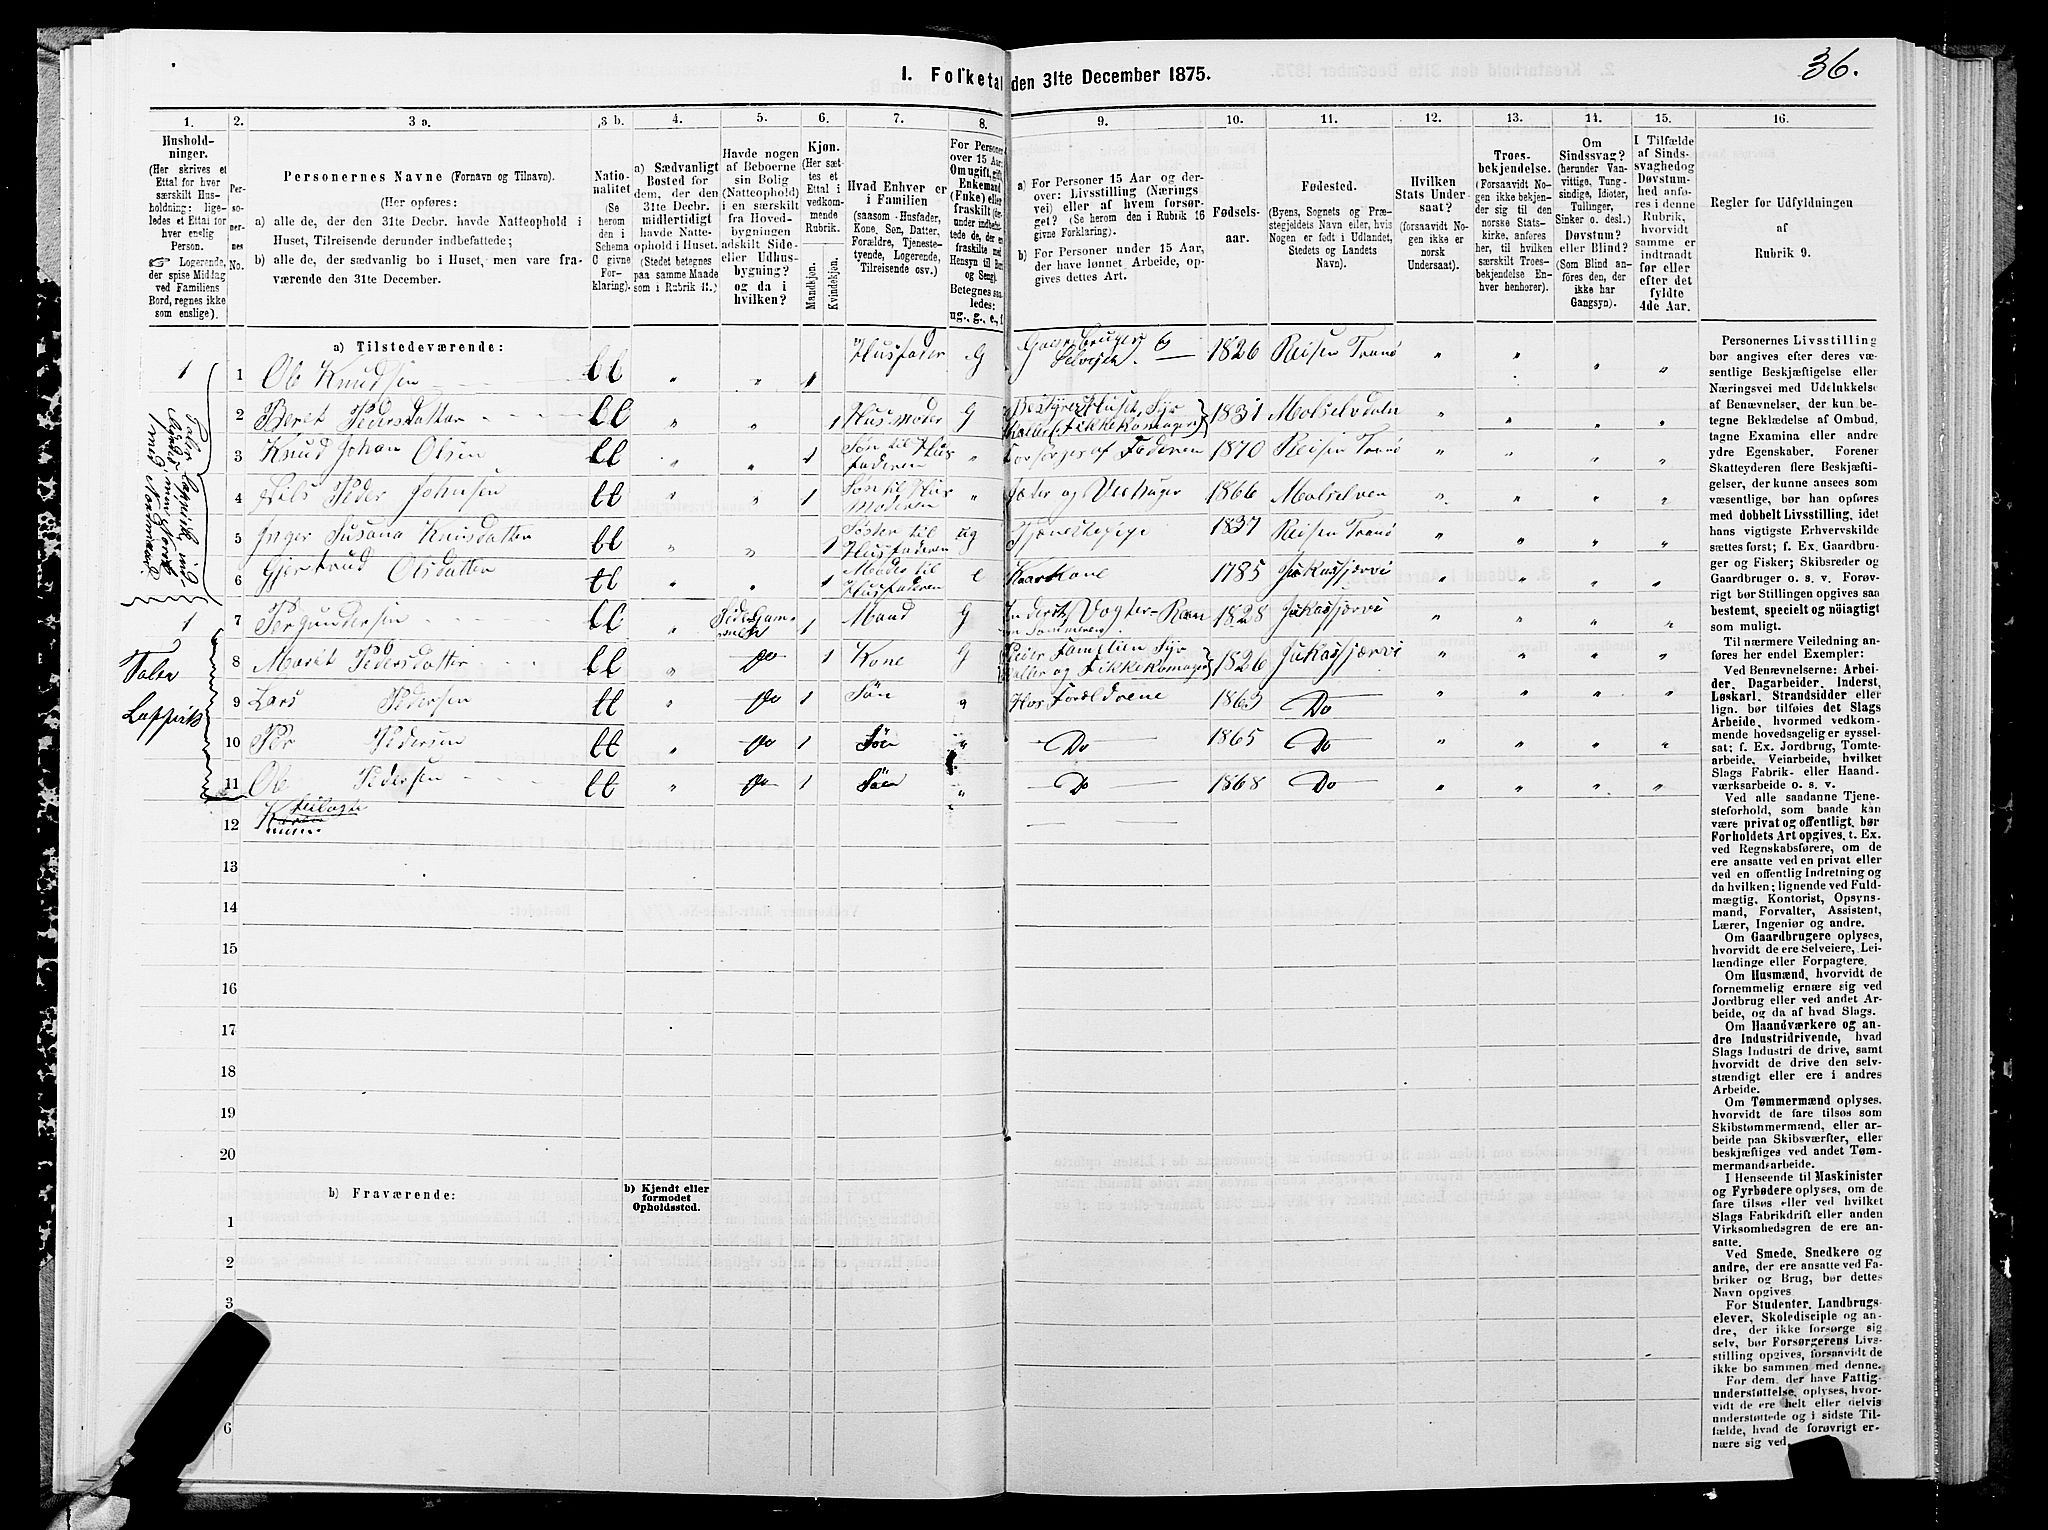 36.
1. Folketal den 31te December 1875.
1. 2. 3 a. 3 b. 4. 5. 6. 7. 8. 9. 10. 11. 12. 13. 14. 15. 16.
Hushold-
ninger.
(Her skrives et
Ettal for hver
særskilt Hus-
holdning; lige-
ledes et Ettal for
hver enslig
Person.
☞ Logerende,
der spise Middag
ved Familiens
Bord, regnes ikke
som enslige).
Per-
so-
ner-
nes
No.
Personernes Navne (Fornavn og Tilnavn).
(Her opføres:
a) alle de, der den 31te Decbr. havde Natteophold i
Huset, Tilreisende derunder indbefattede;
b) alle de, der sædvanlig bo i Huset, men vare fra-
værende den 31te December.
Natio-
nalitet
(Se
herom
den i
Schema
C givne
For-
klaring).
a) Sædvanligt
Bosted for
dem, der den
31te Decbr.
midlertidigt
havde Natte-
ophold i Huset.
(Stedet betegnes
paa samme Maade
som i Rubrik 11.)
Havde nogen
af Beboerne
sin Bolig
(Natteophold)
i en særskilt
fra Hoved-
bygningen
adskilt Side-
eller Udhus-
bygning?
og da i
hvilken?
Kjøn.
(Her sæt-
tes et
Ettal i
vedkom-
mende
Rubrik.
Mandkjøn.
Kvindekjøn.
Hvad Enhver er
i Familien
(saasom Husfader,
Kone, Søn, Datter,
Forældre, Tjeneste-
tyende, Logerende,
Tilreisende osv.)
For Personer
over 15 Aar:
Om ugift, gift,
Enkemand
(Enke) eller
fraskilt (her-
under indbefat-
tede de, der ere
fraskilte med
Hensyn til Bord
og Seng).
Betegnes saa-
ledes:
ug., g., e., f.
a) For Personer 15 Aar og der-
over: Livsstilling (Nærings-
vei) eller af hvem forsør-
get? (Se herom den i Rubrik 16
givne Forklaring).
b) For Personer under 15 Aar,
der have lønnet Arbeide, op-
gives dettes Art.
Fødsels-
aar.
Fødested.
(Byens, Sognets og Præ-
stegjeldets Navn eller, hvis
Nogen er født i Udlandet,
Stedets og Landets
Navn).
Hvilken
Stats Under-
saat?
(forsaavidt No-
gen ikke er
norsk
Undersaat).
Troes-
bekjendelse.
(Forsaavidt No-
gen ikke bekjen-
der sig til den
norske Stats-
kirke, anføres
her, til hvilken
særskilt Troes-
bekjendelse En-
hver henhører).
Om
Sindssvag?
(herunder Van-
vittige, Tung-
sindige, Idioter,
Tullinger,
Sinker o. desl.)
Døvstum?
eller Blind?
(Som Blind an-
føres den, der
ikke har
Gangsyn).
I Tilfælde
af Sinds-
svaghed og
Døvstum-
hed anfø-
res i denne
Rubrik,
hvorvidt
samme er
indtraadt
før eller
efter det
fyldte
4de Aar.
Regler for Udfyldningen
af
Rubrik 9.
a) Tilstedeværende:
1 1 Ole Knudsen ll " " 1 Husfader G Gaardbruger Selveier 1826 Reisen Tranø " " " "
2 Beret Pedersdatter ll " " 1 Husmoder G Bestyrer Huset, Syr Koller & Fikkekomager 1831 Molselvdalen " " " "
3 Knud Johan Olsen ll " " 1 Søn til Husfaderen " Forsørges af Faderen 1870 Reisen Tranø " " " "
4 Nils Peder Johnsen ll " " 1 Søn til Husmoderen " Gjæter og Vedhuger 1866 Molselven " " " "
5 Inger Susana Knudsdatter ll " " 1 Søster til Husfaderen ug Tjenestepige 1837 Reisen Tranø " " " "
6 Gjertrud Olsdatter ll " " 1 Moder til Husfaderen e Kaarkone 1785 Jukasjærvi " " " "
Taler Lappisk, ind
byrdes, men Norsk
med Nordmænd
1 7 Per Gundersen ll " 1 Mand G 1828 Jukasjærvi " " " "
8 Maret Pedersdatter ll " Do 1 Kone G Steller Familien Syr Koller og Fikkekomager 1826 Jukasjærvi " " " "
9 Lars Pedersen ll " Do 1 Søn " Hos Forældrene 1863 Do " " " "
10 Per Pedersen ll " Do 1 Søn " Do 1865 Do " " " "
11 Ole Pedersen ll " Do 1 Søn " Do 1868 Do " " " "
Taler
Lappisk
12
13
14
15
16
17
18
19
20
b) Fraværende:
b) Kjendt eller
formodet
Opholdssted.
1
2
3
6
Personernes Livsstilling
bør angives efter deres væ-
sentlige Beskjæftigelse eller
Næringsvei med Udelukkelse
af Benævnelser, der kun be-
tegne Beklædelse af Ombud,
tagne Examina eller andre
ydre Egenskaber. Forener
Skatteyderen flere Beskjæfti-
gelser, der kunne ansees som
væsentlige, bør han opføres
med dobbelt Livsstilling, idet
hans vigtigste Erhvervskilde
sættes først; f. Ex. Gaardbru-
ger og Fisker; Skibsreder og
Gaardbruger o. s. v. Forøv-
rigt bør Stillingen opgives saa
bestemt, specielt og nøiagtigt
som muligt.
Til nærmere Veiledning an-
føres her endel Exempler:
Ved Benævnelserne: Arbei-
der, Dagarbeider, Inderst,
Løskarl, Strandsidder eller
lign. bør tilføies det Slags
Arbeide, hvormed vedkom-
mende hovedsagelig er syssel-
sat; f. Ex. Jordbrug, Tomte-
arbeide, Veiarbeide, hvilket
Slags Fabrik- eller Haand-
værksarbeide o. s. v.
Ved alle saadanne Tjene-
steforhold, som baade kan
være privat og offentligt, bør
Forholdets Art opgives, t. Ex.
ved Regnskabsførere, om de
ere ansatte ved en privat eller
ved en offentlig Indretning og
da hvilken; lignende ved Fuld-
mægtig, Kontorist, Opsyns-
mand, Forvalter, Assistent,
Lærer, Ingeniør og andre.
Om Gaardbrugere oplyses,
hvorvidt de ere Selveiere, Lei-
lændinge eller Forpagtere.
Om Husmænd, hvorvidt de
fornemmelig ernære sig ved
Jordbrug eller ved andet Ar-
beide, og da af hvad Slags.
Om Haandværkere og an-
dre Industridrivende, hvad
Slags Industri de drive, samt
hvorvidt de drive den selv-
stændigt eller ere i andres
Arbeide.
Om Tømmermænd oplyses,
hvorvidt de fare tilsøs som
Skibstømmermænd, eller ar-
beide paa Skibsværfter, eller
beskjæftiges ved andet Tøm-
mermandsarbeide.
I Henseende til Maskinister
og Fyrbødere oplyses, om de
fare tilsøs eller ved hvilket
Slags Fabrikdrift eller anden
Virksomhedsgren de ere an-
satte.
Ved Smede, Snedkere og
andre, der ere ansatte ved Fa-
briker og Brug, bør dettes
Navn opgives.
For Studenter, Landbrugs-
elever, Skoledisciple og an-
dre, der ikke forsørge sig
selv, bør Forsørgerens Livs-
stilling opgives, forsaavidt de
ikke bo sammen med denne.
For dem, der have Fattig-
understøttelse, oplyses, hvor-
vidt de ere helt eller delvis
understøttede og i sidste Til-
fælde, hvad de forøvrigt er-
nære sig ved.